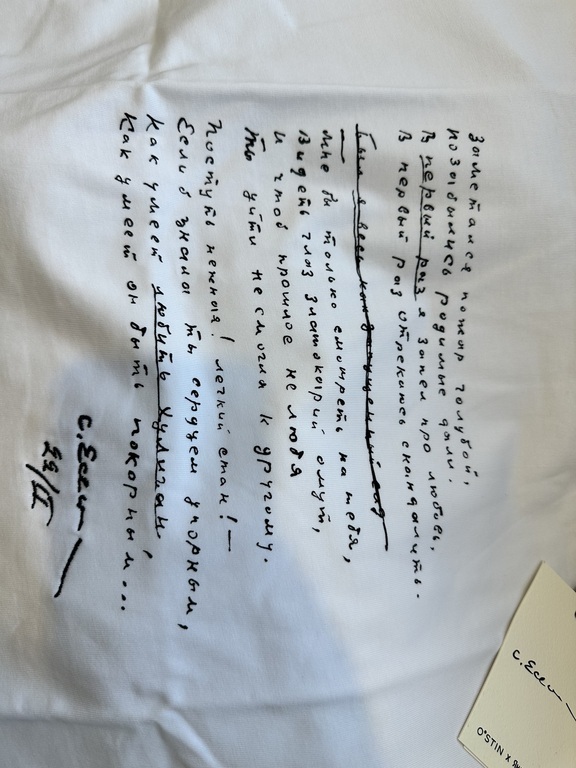 Заметался пожар голубой,
Позабылись родимые дали.
В первый раз я запел про любовь,
В первый раз отрекаюсь скандалить.
Был я весь как запущенный сад
Мне бы только смотреть на тебя,
Видеть глаз златокарий омут,
И чтоб прошлое не любя
Ты уйти не смогла к другому.
Поступь нежная! легкий стан! —
Если б знала ты сердцем упорным,
Как умеет любить хулиган
Как умеет он быть покорным...
С. Есенин
С. Есенин
O'STIN X